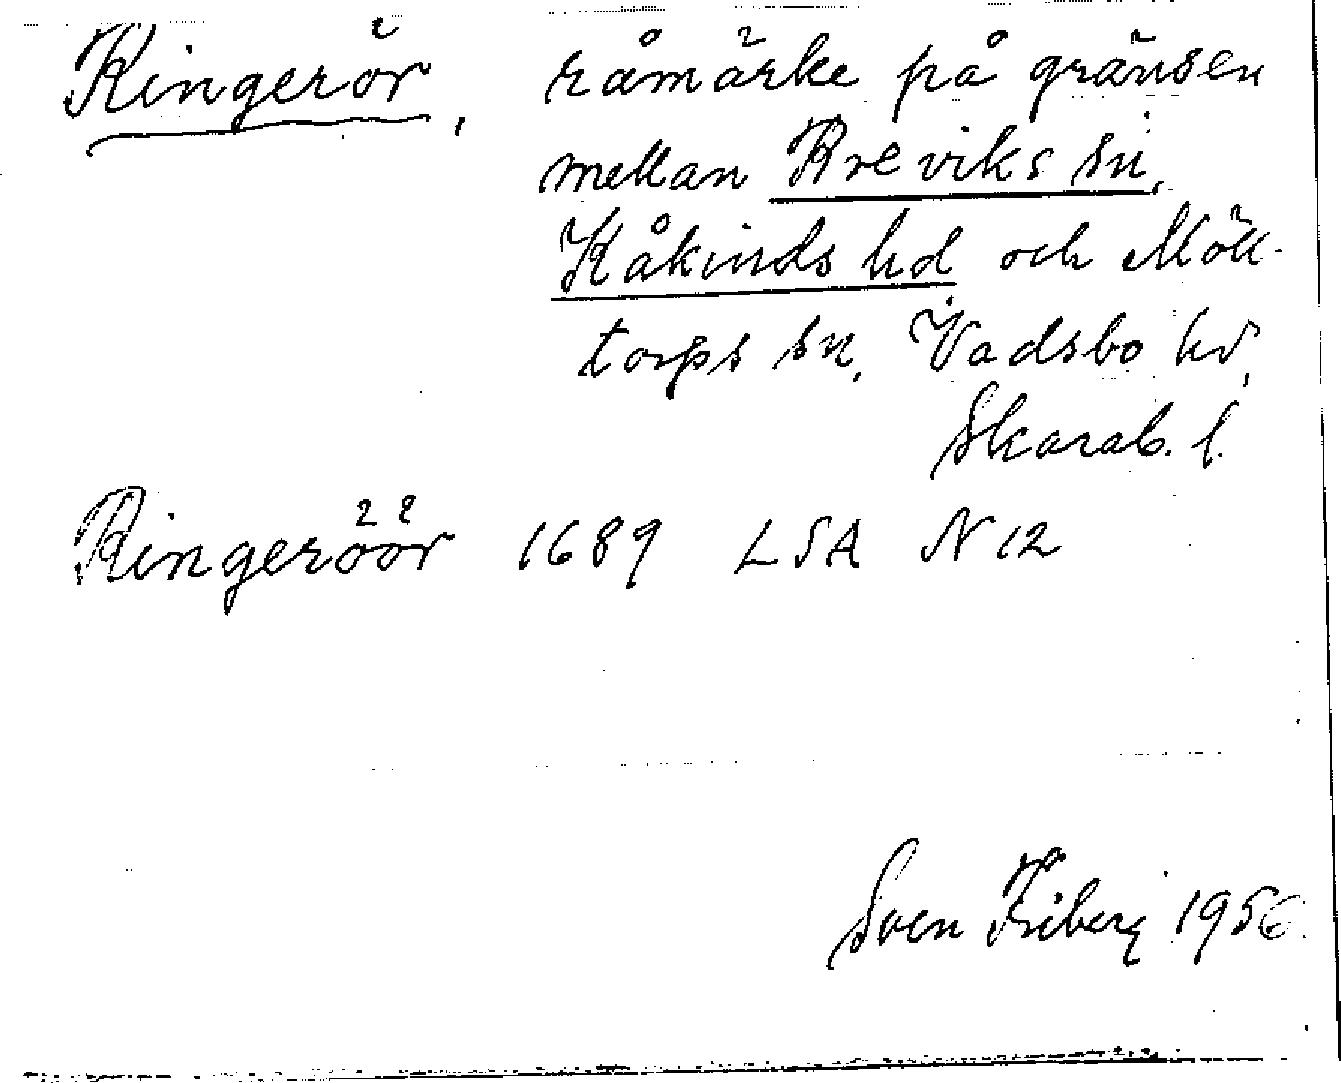 Ringerör, råmärke på gränsen
mellan Breviks sn,
Kåkinds hd och Möll-
torps sn, Vadsbo hd,
Skarab. l.
Ringeröör 1689 LSA N 12
Sven Friberg 1956